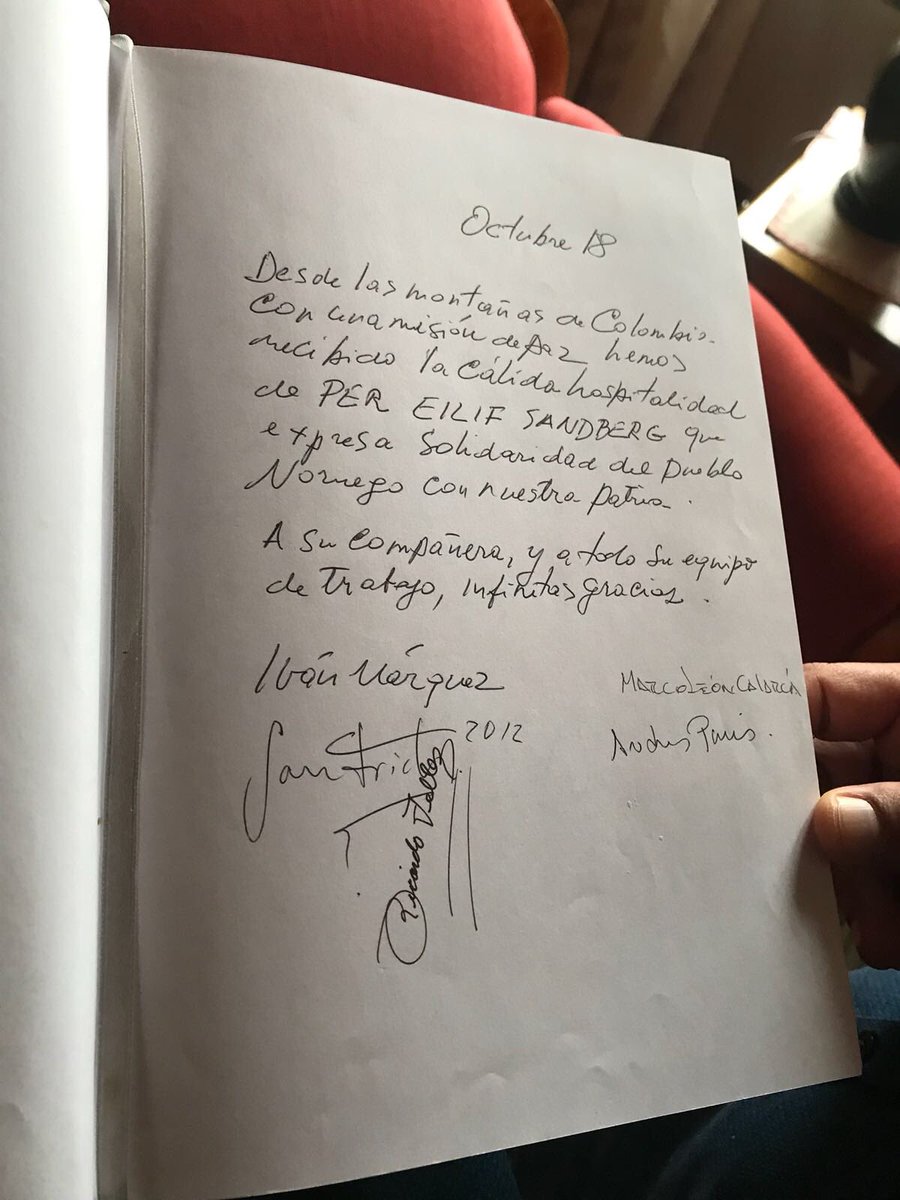 Octubre 18
Desde las montañas de Colombia
con una misión de paz hemos
recibido la cálida hospitalidad
de PER EILIF SANDBERG que
expresa solidaridad del pueblo
Noruego con nuestra patria.
A su compañera, y a todo su equipo
de trabajo, infinitas gracias.
Iván Márquez
MARCO LEÓN CALARCÁ
Santrich 2012
Andrés París.
Ricardo Téllez